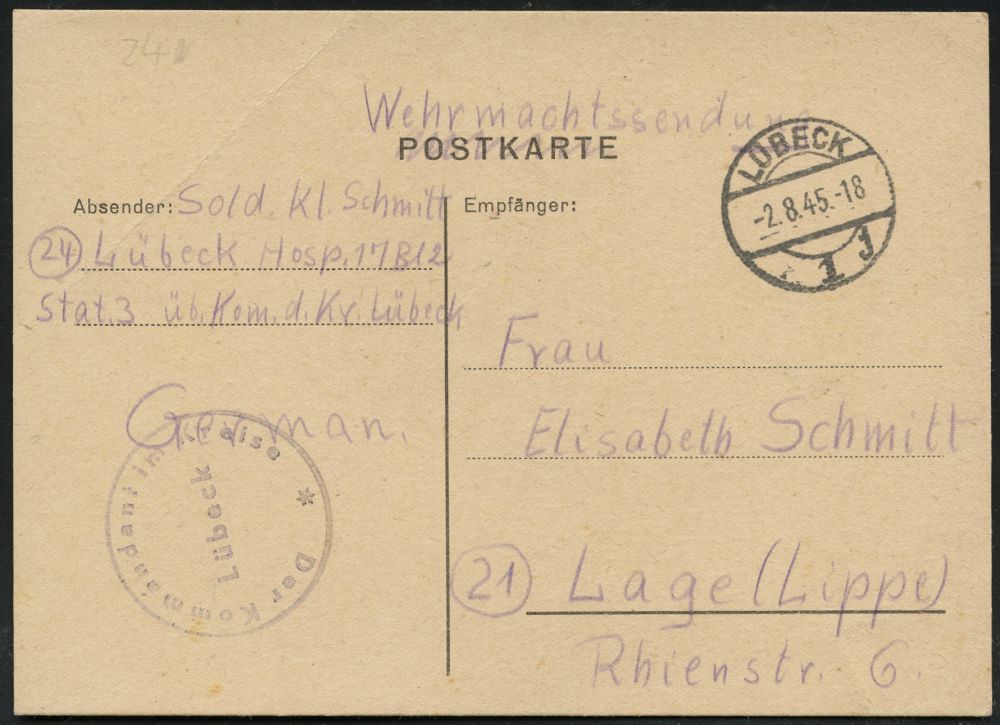 241
Wehrmachtssendung
POSTKARTE
LÜBECK
-2.8.45.-18
1 J
Absender: Sold. Kl. Schmitt
(24) Lübeck Hosp. 17 B12
Stat. 3 üb. Kom. d. Kr. Lübeck
German.
Der Kommandant im Kreise *
Lübeck
Empfänger:
Frau
Elisabeth Schmitt
(21) Lage (Lippe)
Rhienstr. 6.